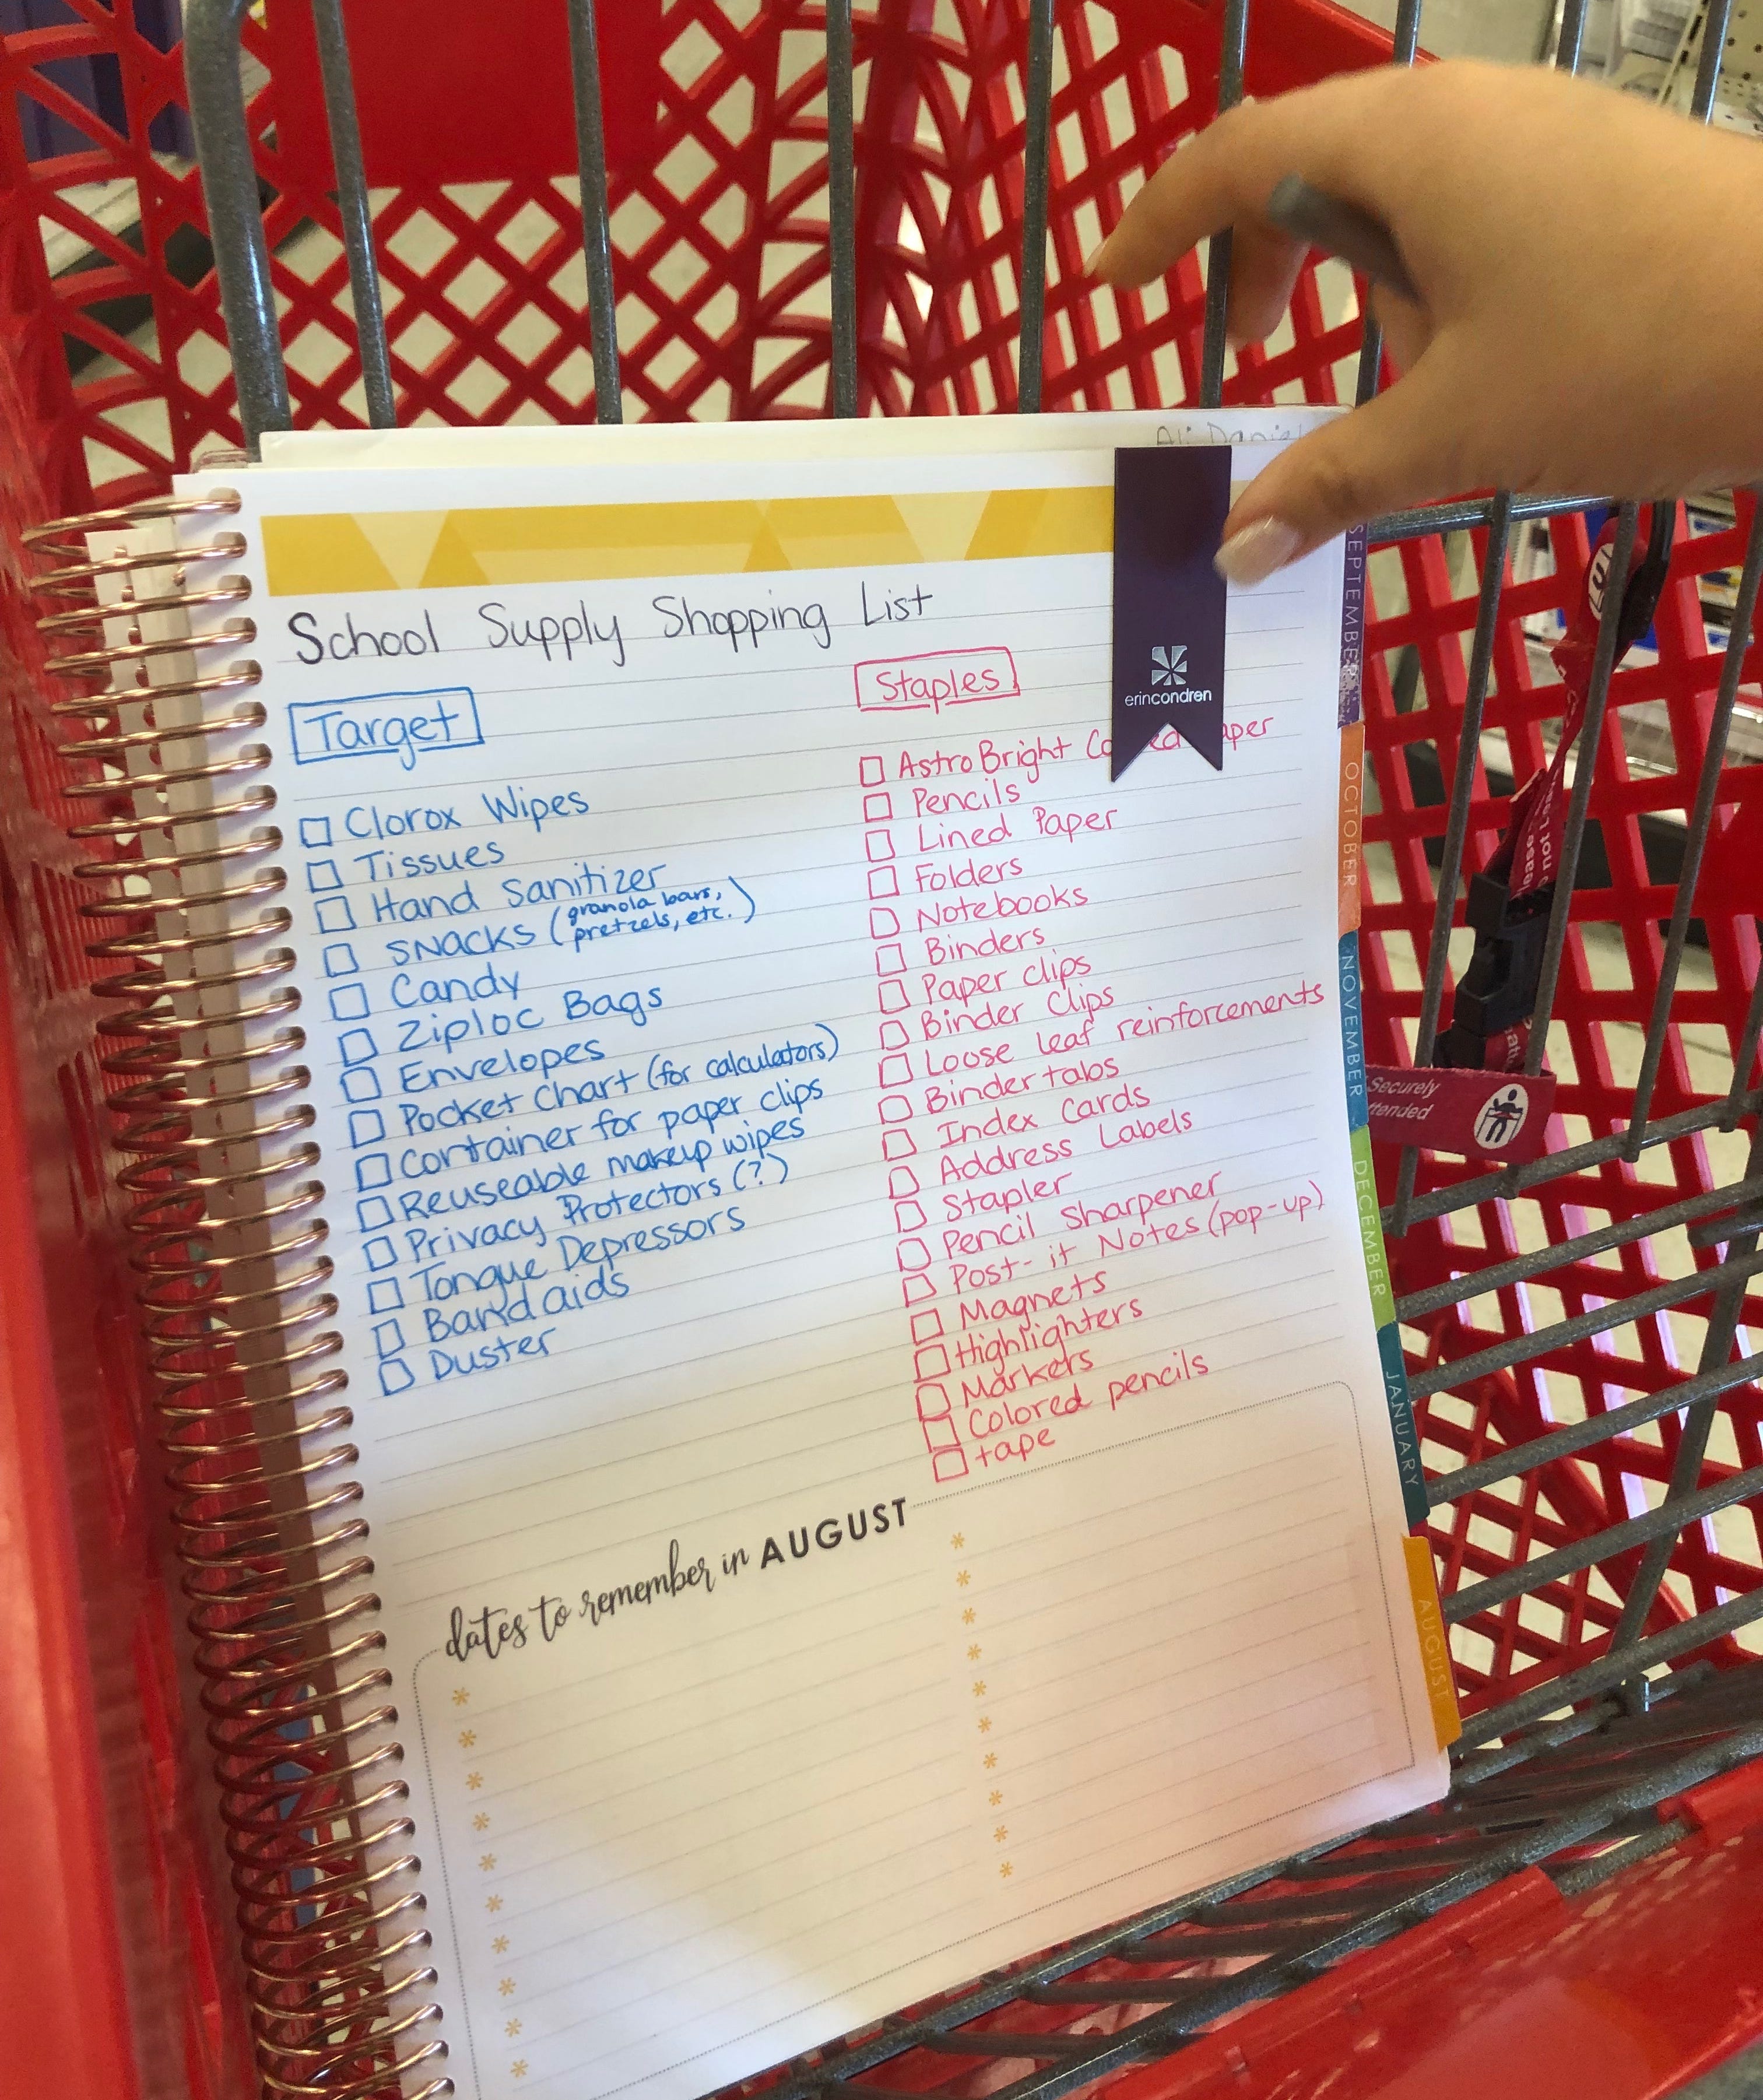 Ali Daniel
School Supply Shopping List
Target
Clorox Wipes
Tissues
Hand Sanitizer
SNACKS (granola bars,
pretzels, etc.)
Candy
Ziploc Bags
Envelopes
Pocket Chart (for calculators)
Container for paper clips
Reuseable makeup wipes
Privacy Protectors (?)
Tongue Depressors
Bandaids
Duster
Staples
erincondren
AstroBright
Pencils
Lined Paper
Folders
Notebooks
Binders
Paper clips
Binder Clips
Loose leaf reinforcements
Binder tabs
Index Cards
Address Labels
Stapler
Pencil Sharpener
Post-it Notes (pop-up)
Magnets
Highlighters
Markers
Colored pencils
tape
dates to remember in AUGUST
SEPTEMBER
OCTOBER
NOVEMBER
DECEMBER
JANUARY
AUGUST
Securely